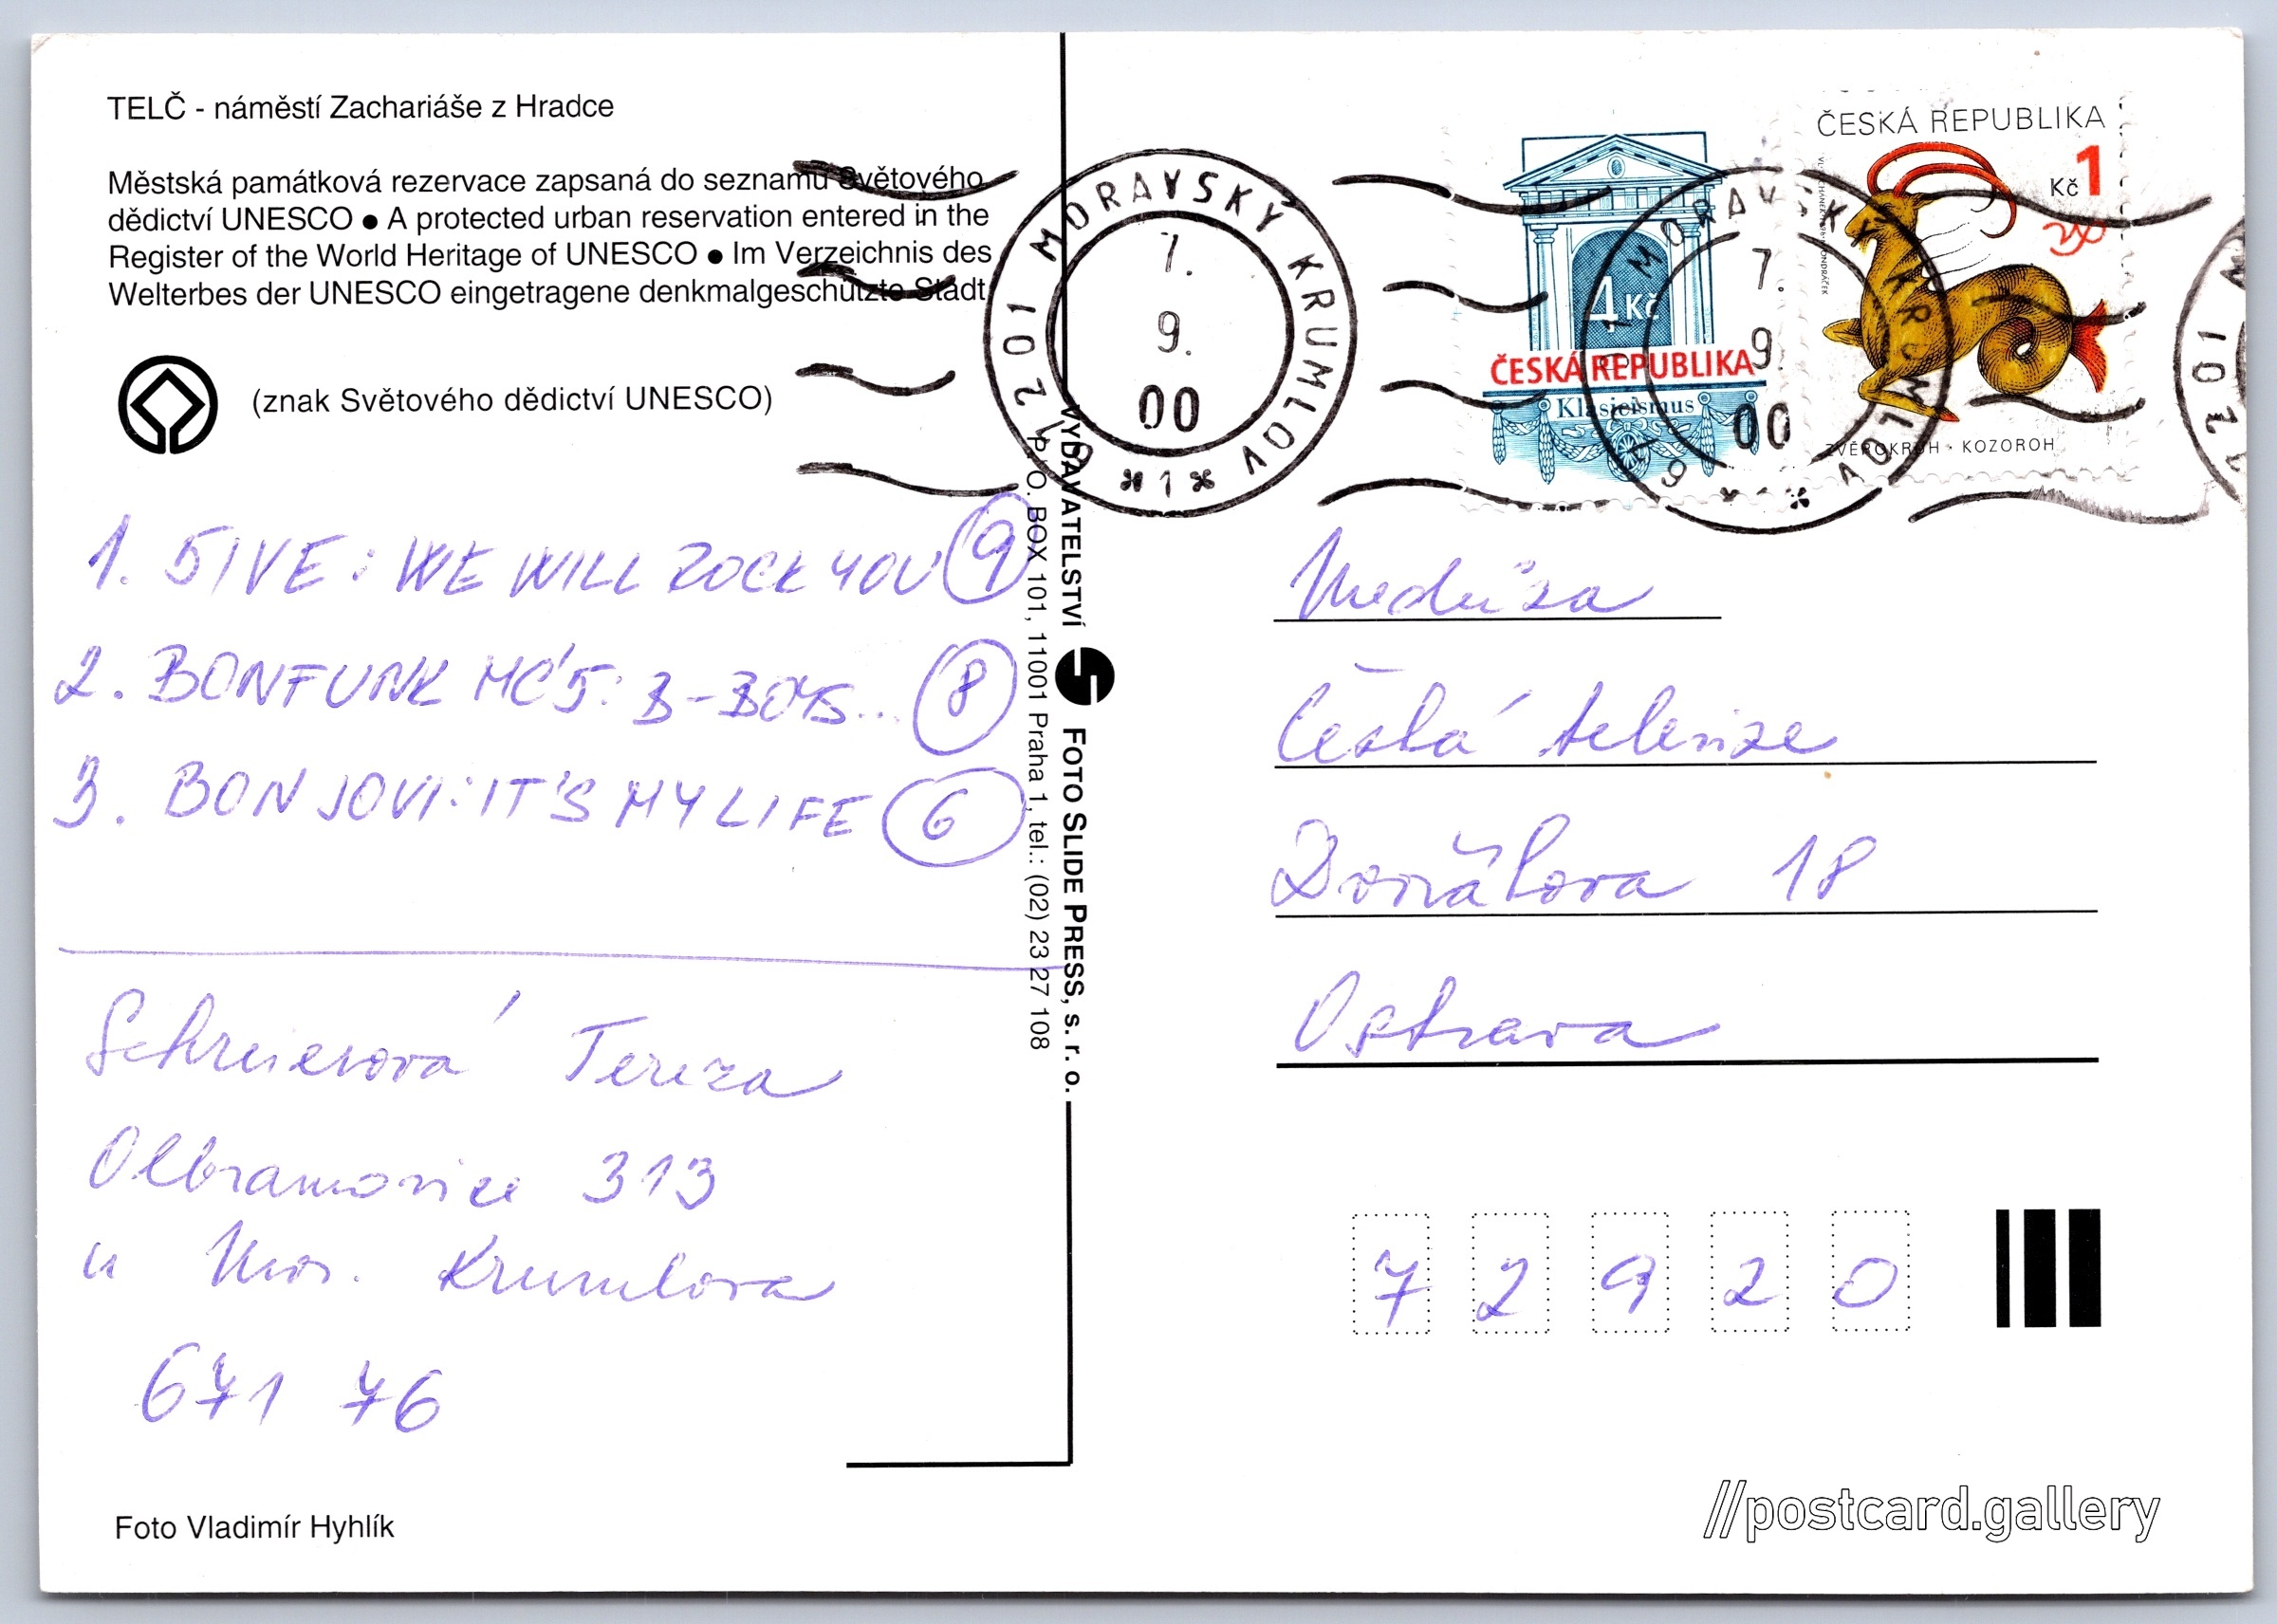 TELČ - náměstí Zachariáše z Hradce
Městská památková rezervace zapsaná do seznamu Světového
dědictví UNESCO ● A protected urban reservation entered in the
Register of the World Heritage of UNESCO ● Im Verzeichnis des
Welterbes der UNESCO eingetragene denkmalgeschützte Stadt
(znak Světového dědictví UNESCO)
1. 5IVE: WE WILL ROCK YOU 9
2. BOMFUNK MC'S: B-BOYS... 8
3. BON JOVI: IT'S MY LIFE 6
Schreierová Tereza
Olbramovice 313
u Mor. Krumlova
671 76
Foto Vladimír Hyhlík
VYDAVATELSTVÍ FOTO SLIDE PRESS, s. r. o.
P. O. BOX 101, 11001 Praha 1, tel.: (02) 23 27 108
672 01 MORAVSKÝ KRUMLOV
7.
9.
00
* 1 *
4 Kč
ČESKÁ REPUBLIKA
Klasicismus
ČESKÁ REPUBLIKA
Kč 1
ZVĚROKRUH · KOZOROH
672 01 MORAVSKÝ KRUMLOV
7.
9.
00
Medúza
Česká televize
Dvořákova 18
Ostrava
7 2 9 2 0
//postcard.gallery